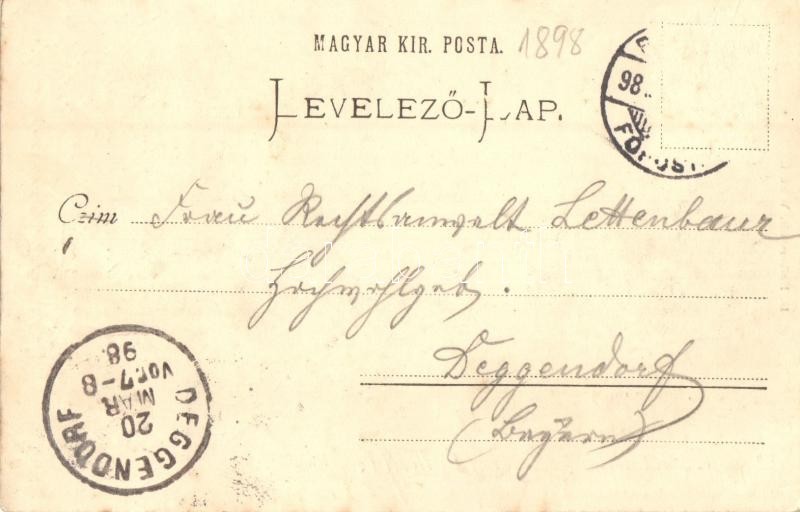 MAGYAR KIR. POSTA. 1898
LEVELEZŐ-LAP.
98
Czim Frau Rechtsanwalt Lettenbaur
Hochwohlgeb.
Deggendorf
(Bayern)
DEGGENDORF
20
MAR
Vor. 7-8
98.